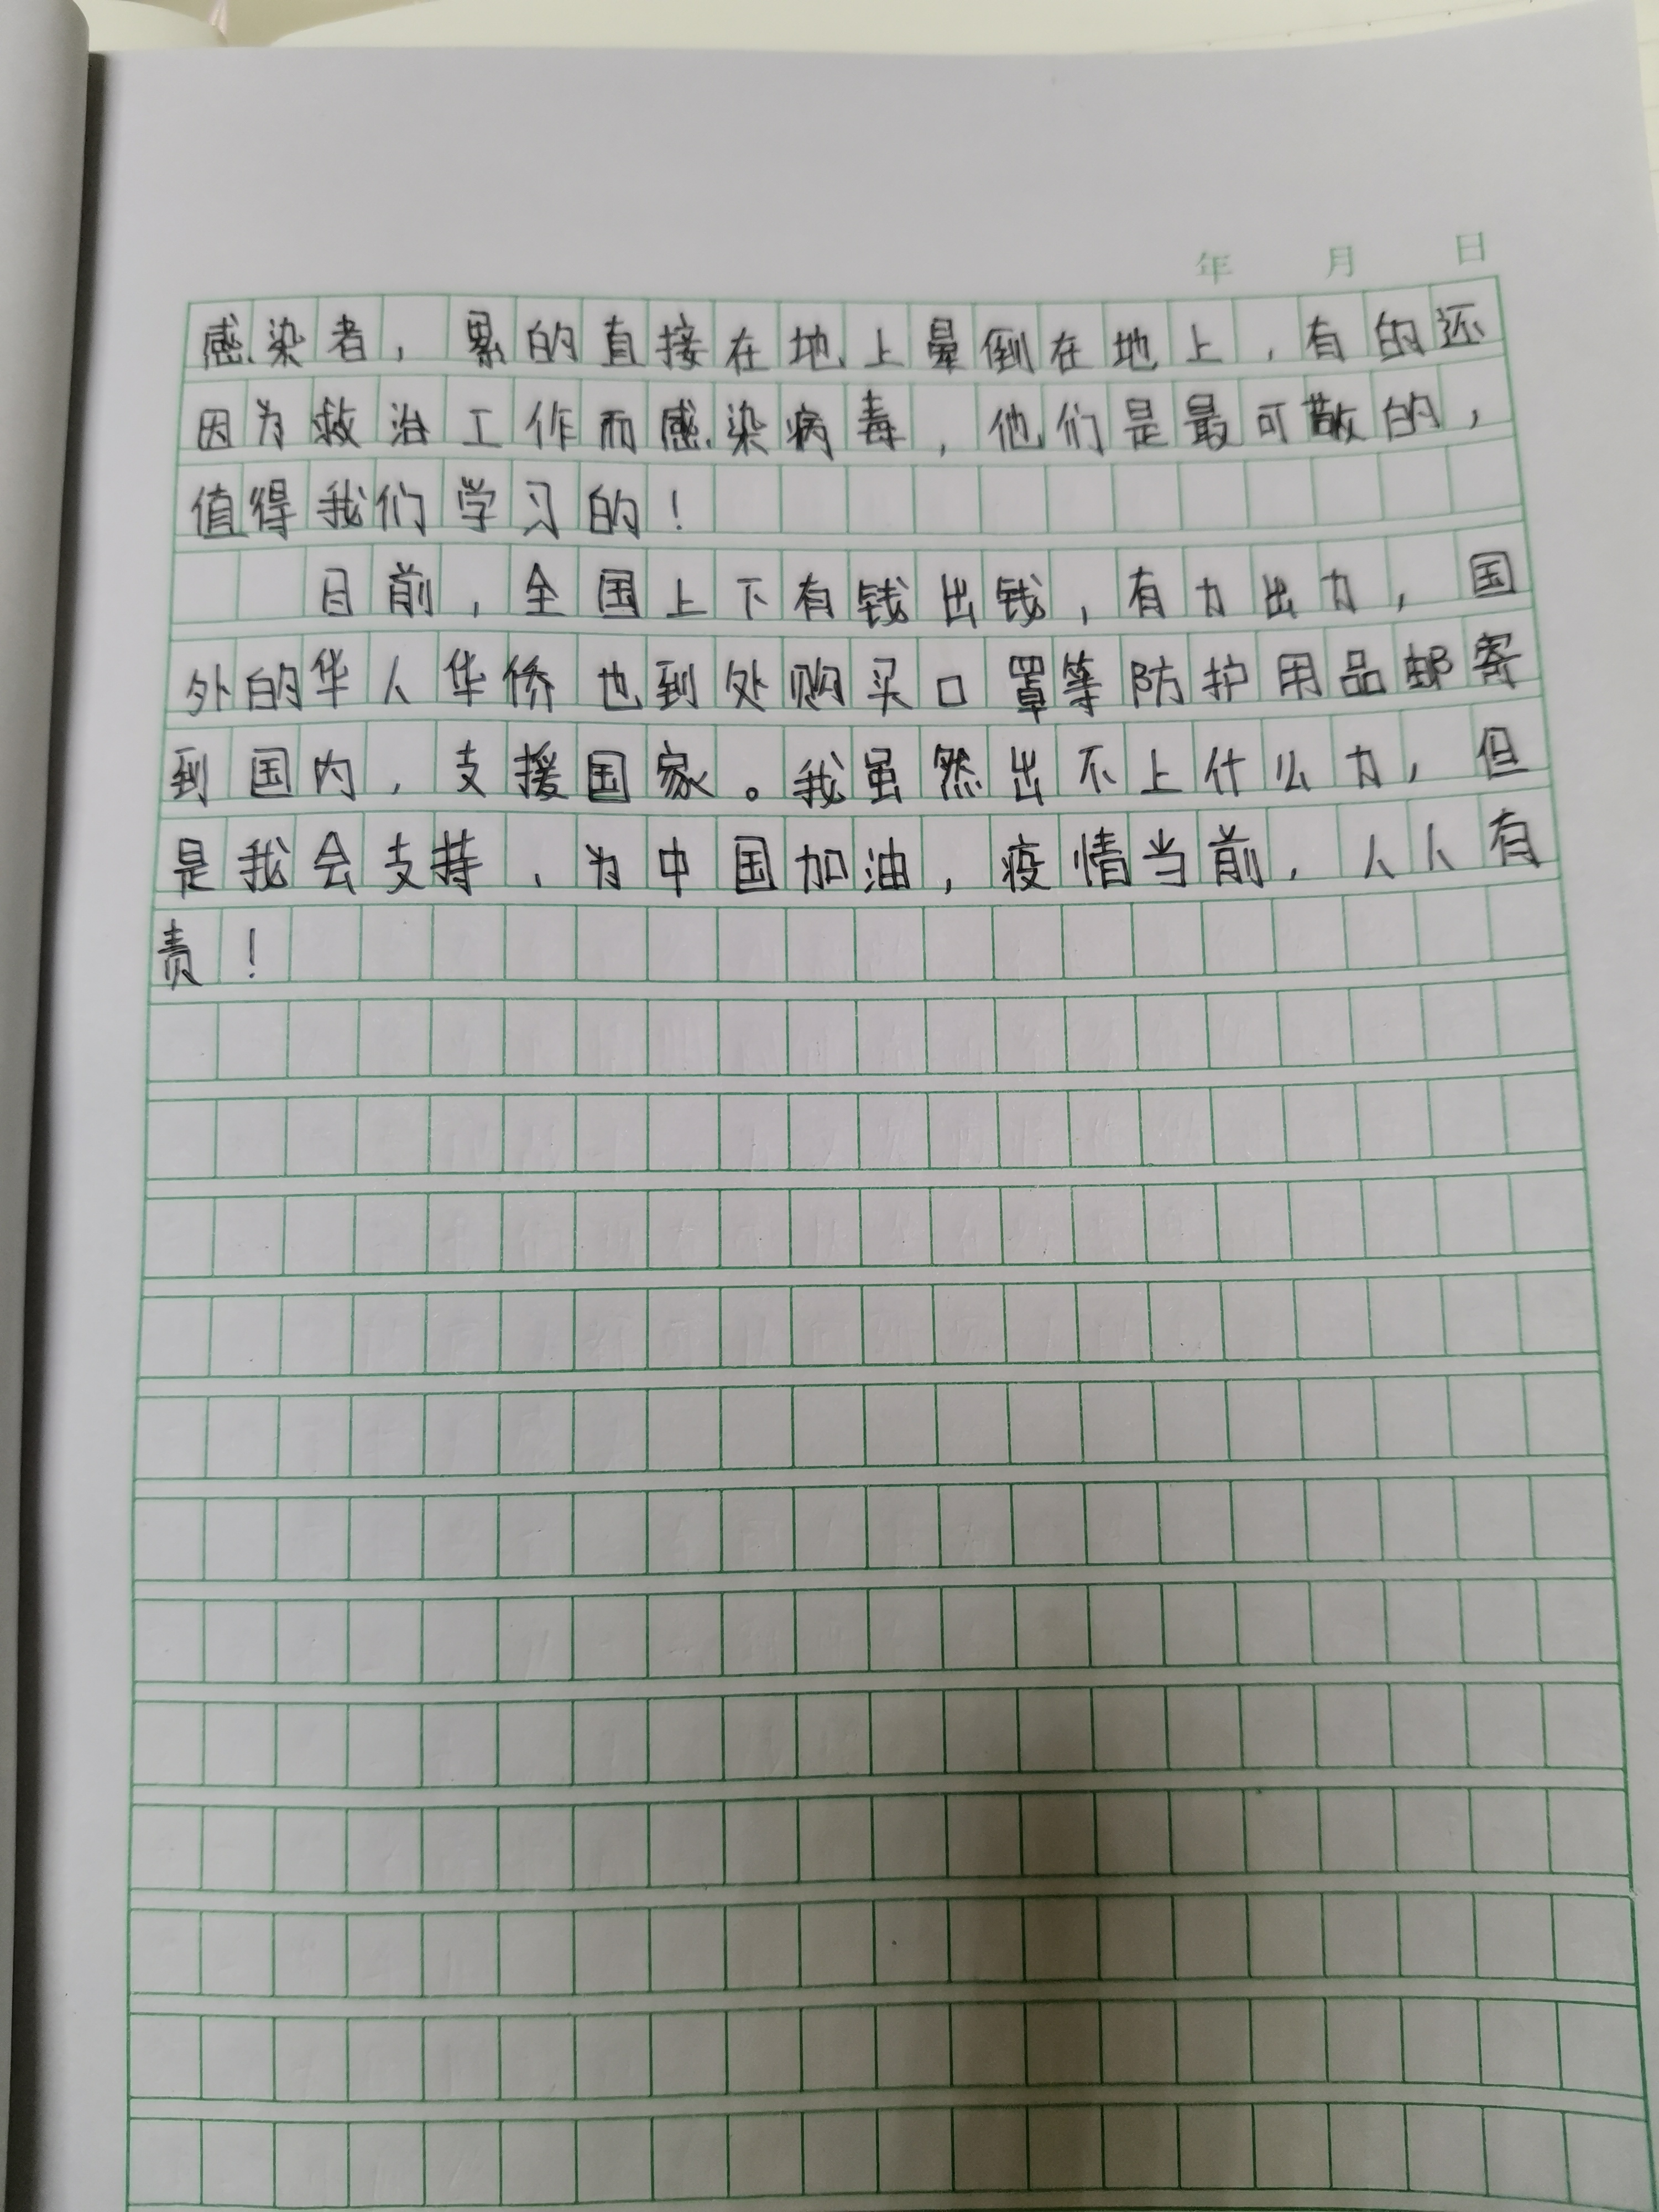 年 月 日
感染者，累的直接在地上晕倒在地上，有的还
因为救治工作而感染病毒，他们是最可敬的，
值得我们学习的！
目前，全国上下有钱出钱，有力出力，国
外的华人华侨也到处购买口罩等防护用品邮寄
到国内，支援国家。我虽然出不上什么力，但
是我会支持，为中国加油，疫情当前，人人有
责！